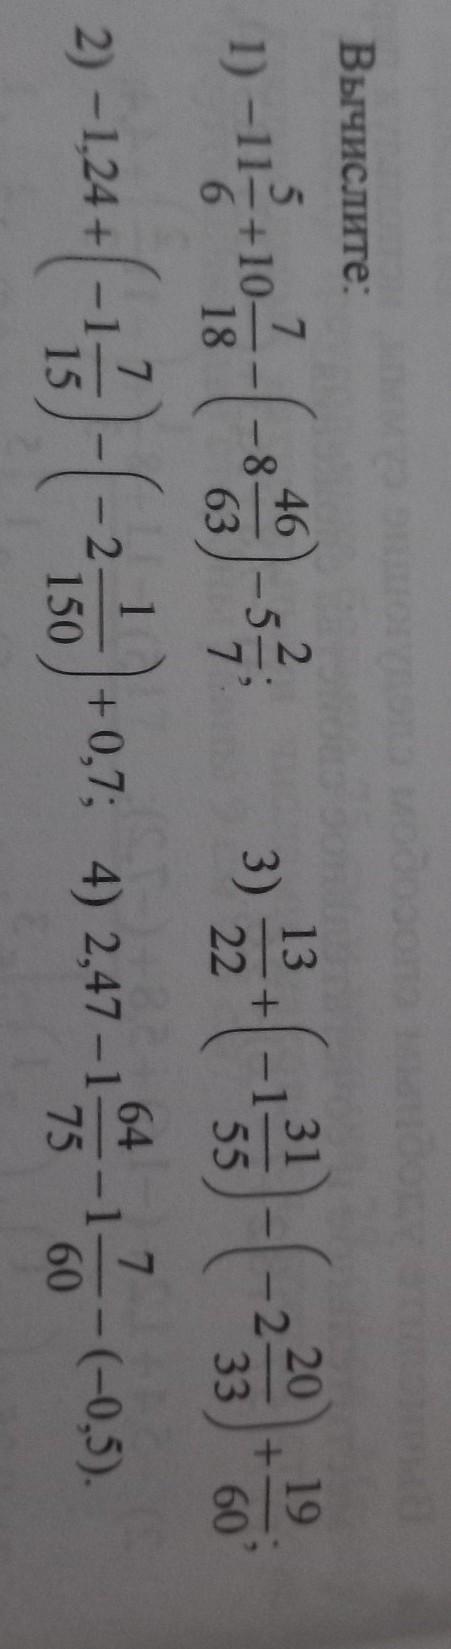 Вычислите:
1) −11 5/6 + 10 7/18 − (−8 46/63) − 5 2/7; 3) 13/22 + (−1 31/55) − (−2 20/33) + 19/60;
2) −1,24 + (−1 7/15) − (−2 1/150) + 0,7; 4) 2,47 − 1 64/75 − 1 7/60 − (−0,5).